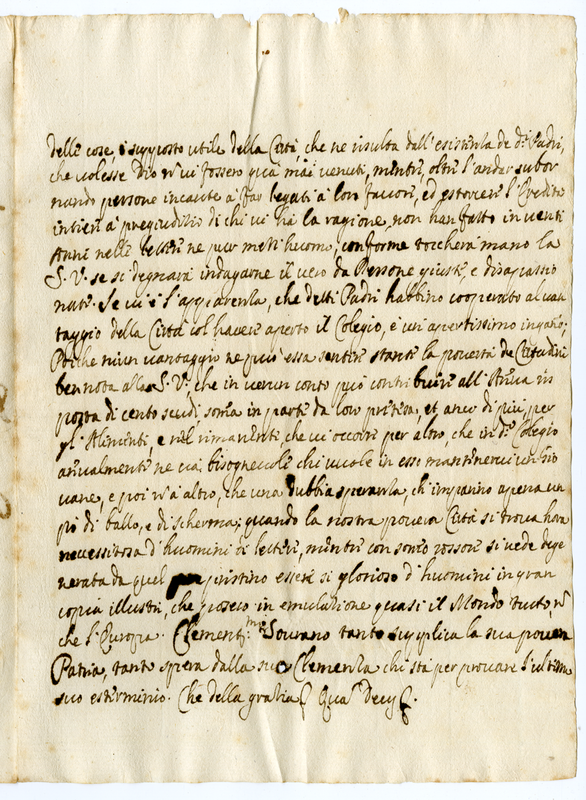 delle cose, è supposto utile della Città, che ne risulta dall'esistenza de d.i Padri,
che volesse Dio n' vi fossero quà mai venuti, mentre oltre l'andar subor
nando persone incaute à far legati à lor favore, ed estorcere l'Eredità
intiere à pregiudizio di chi vi hà la ragione, non han fatto in venti
Anni nelle lettere ne pur mezz'huomo, conforme toccherà mano la
S. V. se si degnarà indagarne il vero da Persone giuste, e disapassio
nate. Se vi è l'apparenza, che detti Padri habbino cooperato al van
taggio della Città col havere aperto il Colegio, è un apertissimo inganno,
Poiche niun vantaggio ne può essa sentire stante la povertà de Cittadini
ben nota alla S. V. che in verun conto può contribuire all'Annua im
porta di cento scudi, somma in parte da loro pretesa, et anco di più, per
gl'Alimenti, e nel rimanente, che vi occorre per altro, che in d.o Colegio
annualmente ne và, bisognevole chi vuole in esso mantenervi un Gio
vane, e poi n' v'à altro, che una dubbia speranza, ch'imparino apena un
pò di ballo, e di scherma; quando la nostra povera Città si trova hora
necessitosa d'huomini di lettere, mentre con sommo rossore si vede dege
nerata da quel pristino essere sì glorioso d'huomini in gran
copia illustri, che posero in emulazione quasi il Mondo tutto, n'
che l'Europa. Clementiss.mo Sovrano tanto supplica la sua povera
Patria, tanto spera dalla sua Clemenza chi stà per provare l'ultimo
suo esterminio. Che della grazia Qua Deus